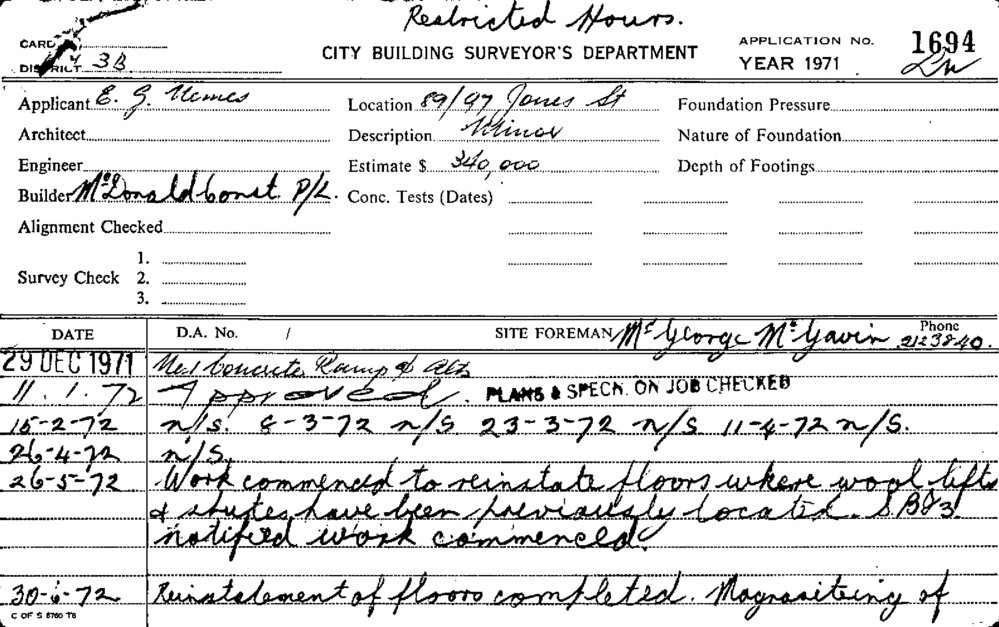 Restricted Hours.
CARD
CITY BUILDING SURVEYOR'S DEPARTMENT
APPLICATION No. 1694
DISTRICT 3B
YEAR 1971
Applicant E. G. Nemes
Location 89/97 Jones St
Foundation Pressure
Architect
Description Minor
Nature of Foundation
Engineer
Estimate $ 340,000
Depth of Footings
Builder McDonald Const. P/L.
Conc. Tests (Dates)
Alignment Checked
Survey Check
1.
2.
3.
DATE D.A. No. / SITE FOREMAN Mr George McGavin Phone 2123840.
29 DEC 1971 Concrete Ramp & Alts
11.1.72 Approved. PLANS & SPECN. ON JOB CHECKED
15-2-72 n/s. 8-3-72 n/s 23-3-72 n/s 11-4-72 n/s.
26-4-72 n/s.
26-5-72 Work commenced to reinstate floors where wool lifts
& shutes have been previously located. SBI3
notified work commenced.
30-6-72 Reinstatement of floors completed. Magnasiteing of
C OF S 5760 T8